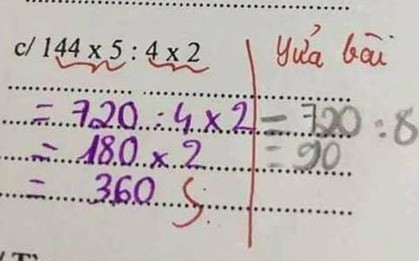 c/ 144 x 5 : 4 x 2
= 720 : 4 x 2
= 180 x 2
= 360 S
Sửa bài
= 720 : 8
= 90